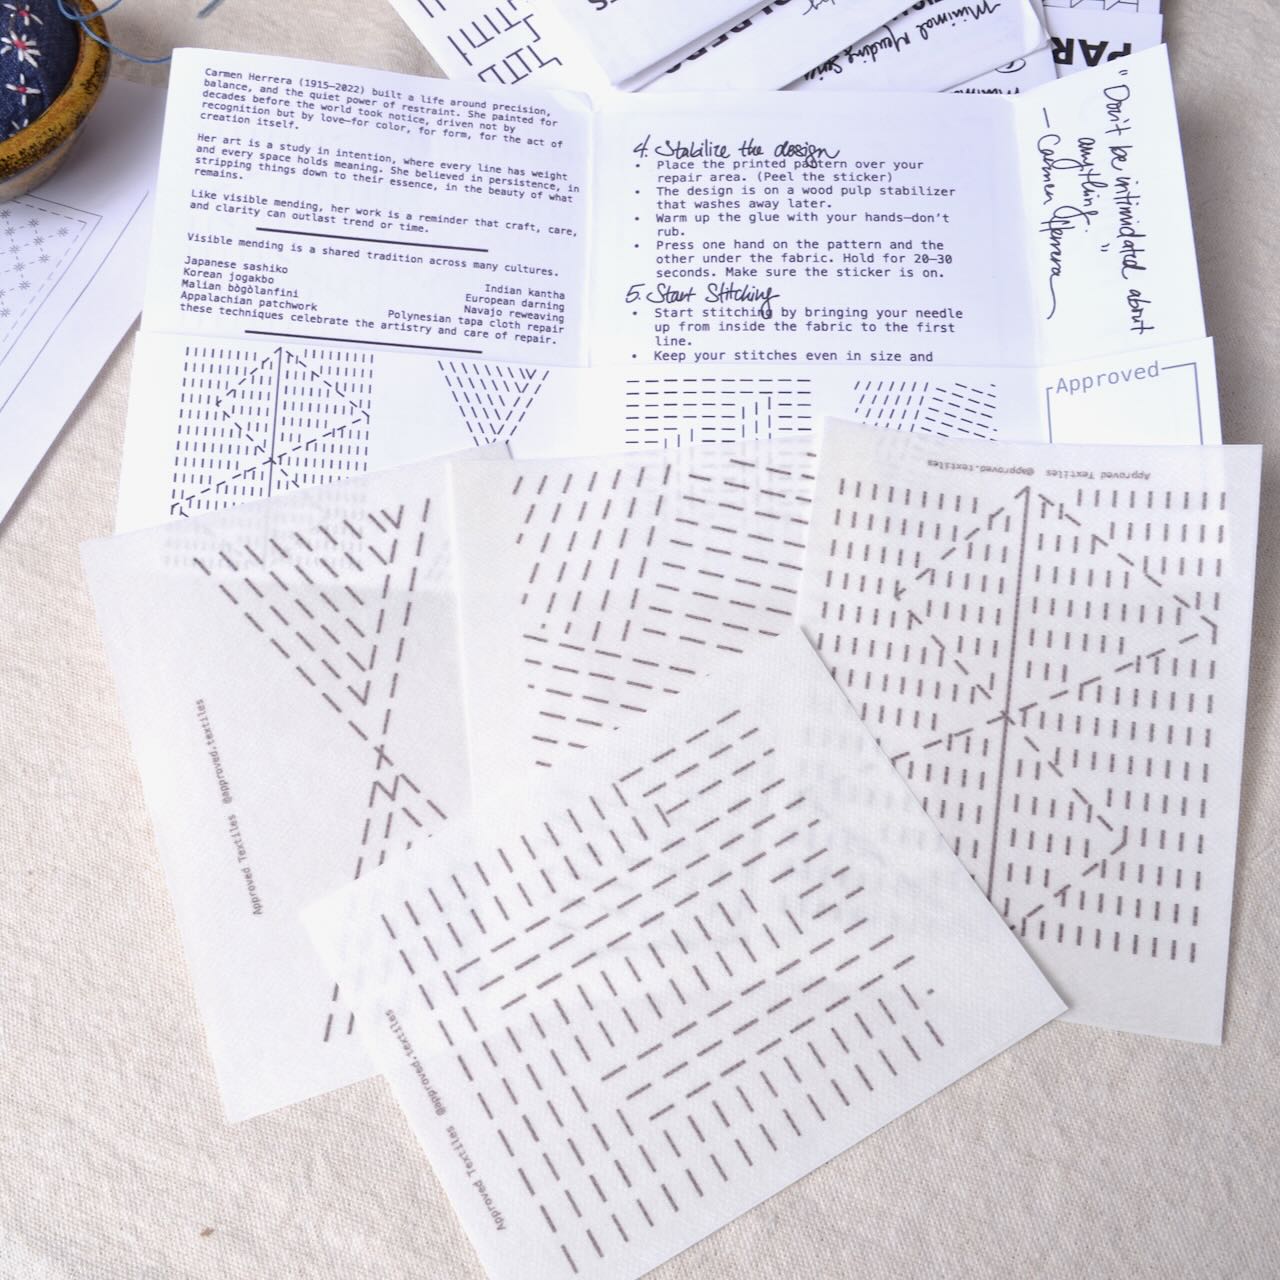 Carmen Herrera (1915–2022) built a life around precision,
balance, and the quiet power of restraint. She painted for
decades before the world took notice, driven not by
recognition but by love—for color, for form, for the act of
creation itself.
Her art is a study in intention, where every line has weight
and every space holds meaning. She believed in persistence, in
stripping things down to their essence, in the beauty of what
remains.
Like visible mending, her work is a reminder that craft, care,
and clarity can outlast trend or time.
Visible mending is a shared tradition across many cultures.
Japanese sashiko
Korean jogakbo
Malian bògòlanfini
Appalachian patchwork
Indian kantha
European darning
Navajo reweaving
Polynesian tapa cloth repair
these techniques celebrate the artistry and care of repair.
4. Stabilize the design
• Place the printed pattern over your
repair area. (Peel the sticker)
• The design is on a wood pulp stabilizer
that washes away later.
• Warm up the glue with your hands—don't
rub.
• Press one hand on the pattern and the
other under the fabric. Hold for 20–30
seconds. Make sure the sticker is on.
5. Start Stitching
• Start stitching by bringing your needle
up from inside the fabric to the first
line.
• Keep your stitches even in size and
"Don't be intimidated about
anything."
— Carmen Herrera
Approved
Minimal Mending
PAR
Approved Textiles @approved.textiles
Approved Textiles @approved.textiles
Approved Textiles @approved.textiles